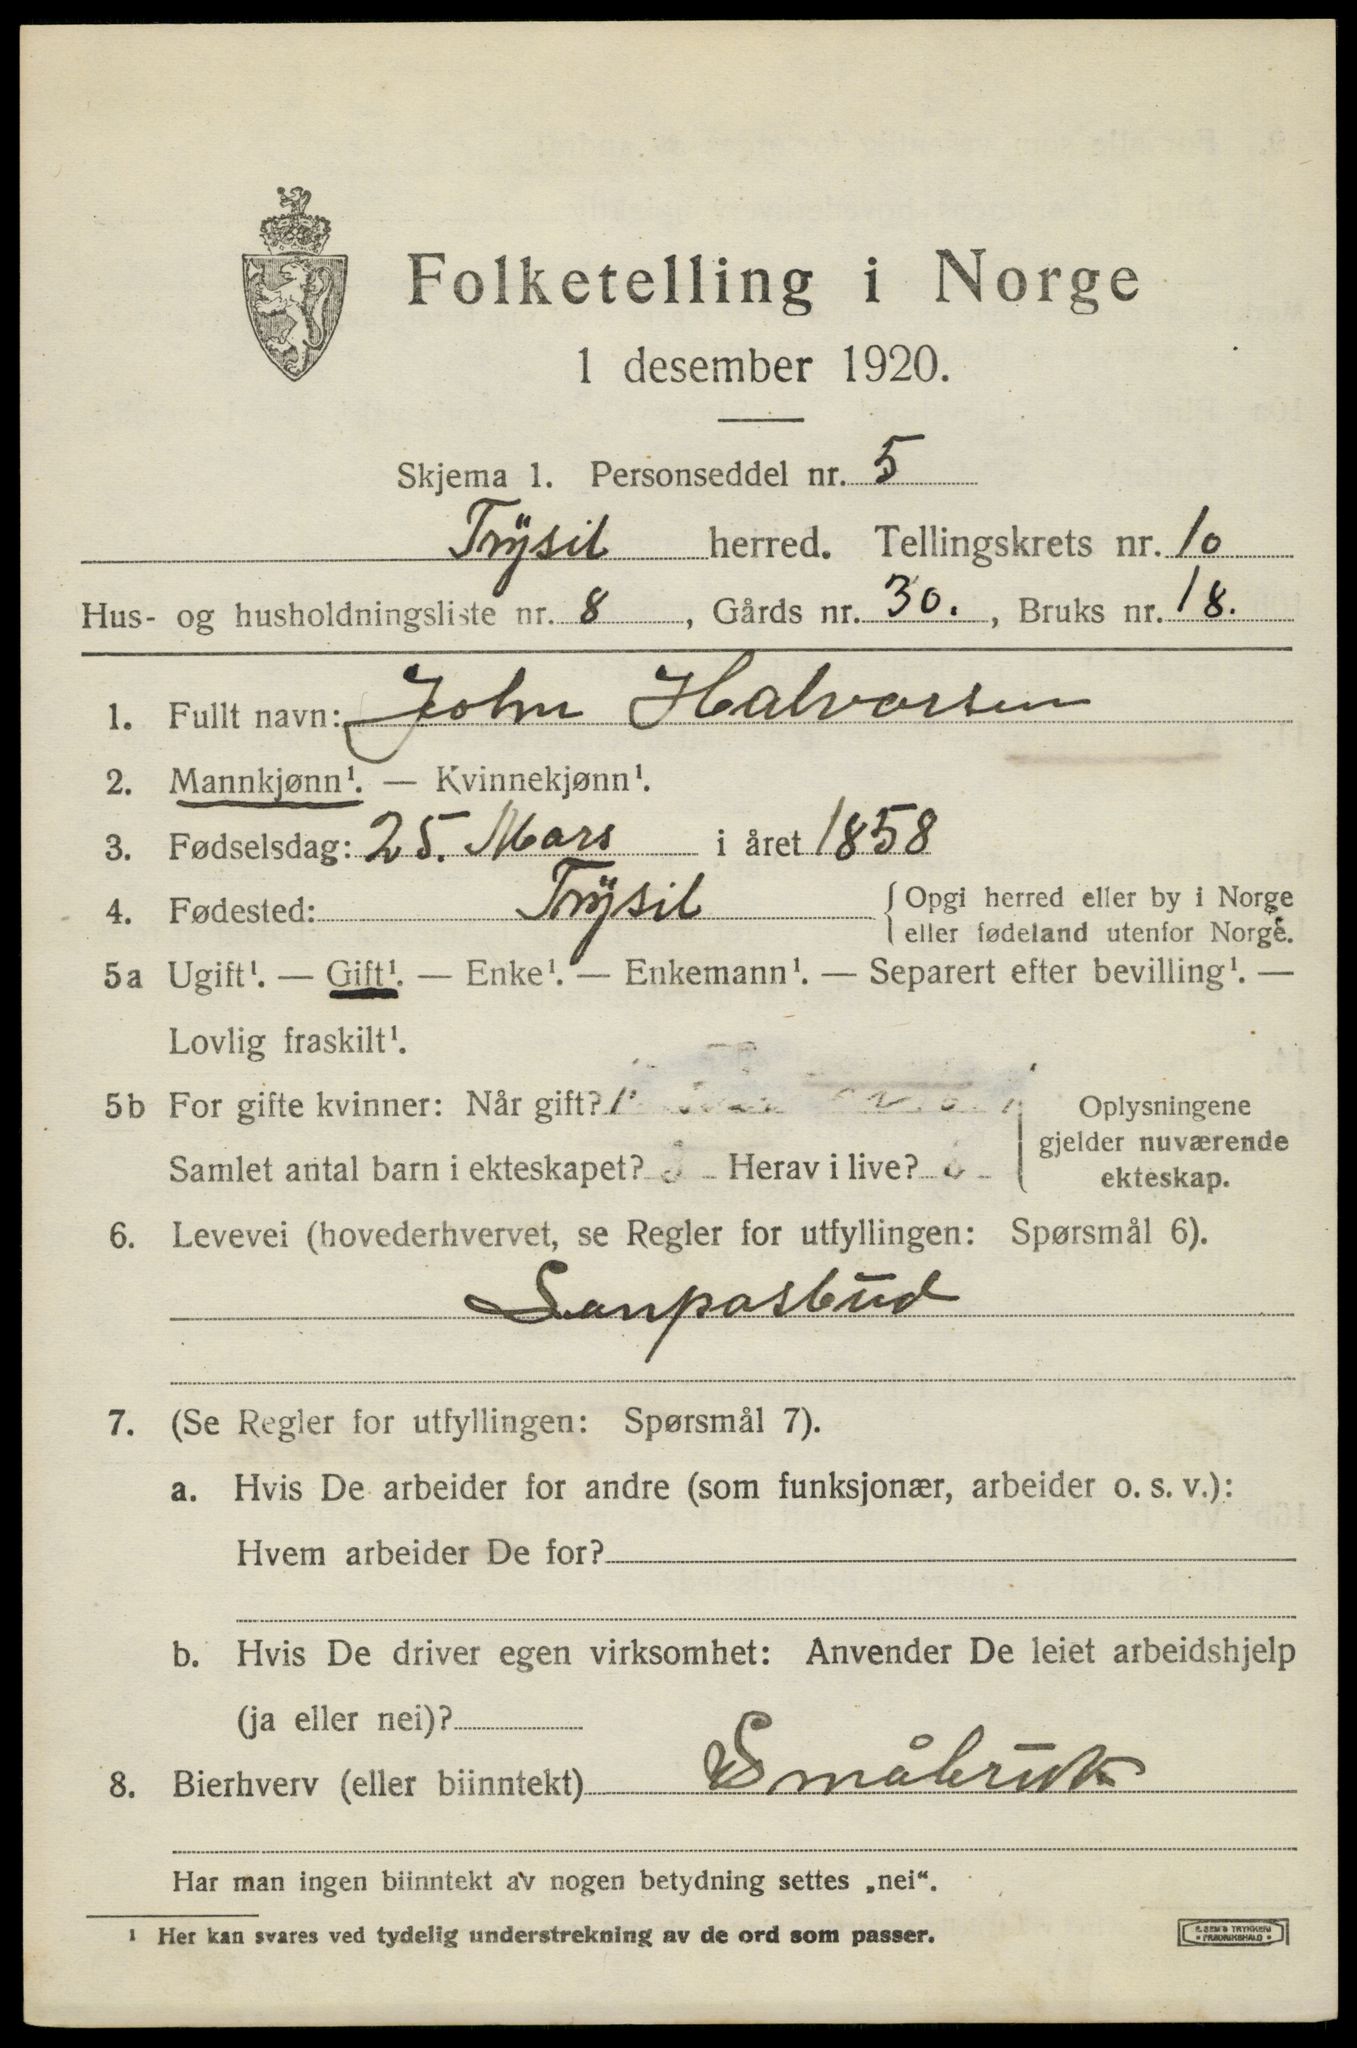 Folketelling i Norge
1 desember 1920.
Skjema 1. Personseddel nr. 5
Trysil herred. Tellingskrets nr. 10
Hus- og husholdningsliste nr. 8, Gårds nr. 30., Bruks nr. 18.
1. Fullt navn: John Halvorsen
2. Mannkjønn¹. — Kvinnekjønn¹.
3. Fødselsdag: 25. Mars i året 1858
4. Fødested: Trysil { Opgi herred eller by i Norge
eller fødeland utenfor Norge.
5a Ugift¹. — Gift¹. — Enke¹. — Enkemann¹. — Separert efter bevilling¹. —
Lovlig fraskilt¹.
5b For gifte kvinner: Når gift?
Samlet antal barn i ekteskapet? Herav i live?
Oplysningene
gjelder nuværende
ekteskap.
6. Levevei (hovederhvervet, se Regler for utfyllingen: Spørsmål 6).
Lanpostbud
7. (Se Regler for utfyllingen: Spørsmål 7).
a. Hvis De arbeider for andre (som funksjonær, arbeider o. s. v.):
Hvem arbeider De for?
b. Hvis De driver egen virksomhet: Anvender De leiet arbeidshjelp
(ja eller nei)?
8. Bierhverv (eller biinntekt) Småbruk
Har man ingen biinntekt av nogen betydning settes „nei".
¹ Her kan svares ved tydelig understrekning av de ord som passer.
E. SEM'S TRYKKERI
• FREDRIKSHALD •